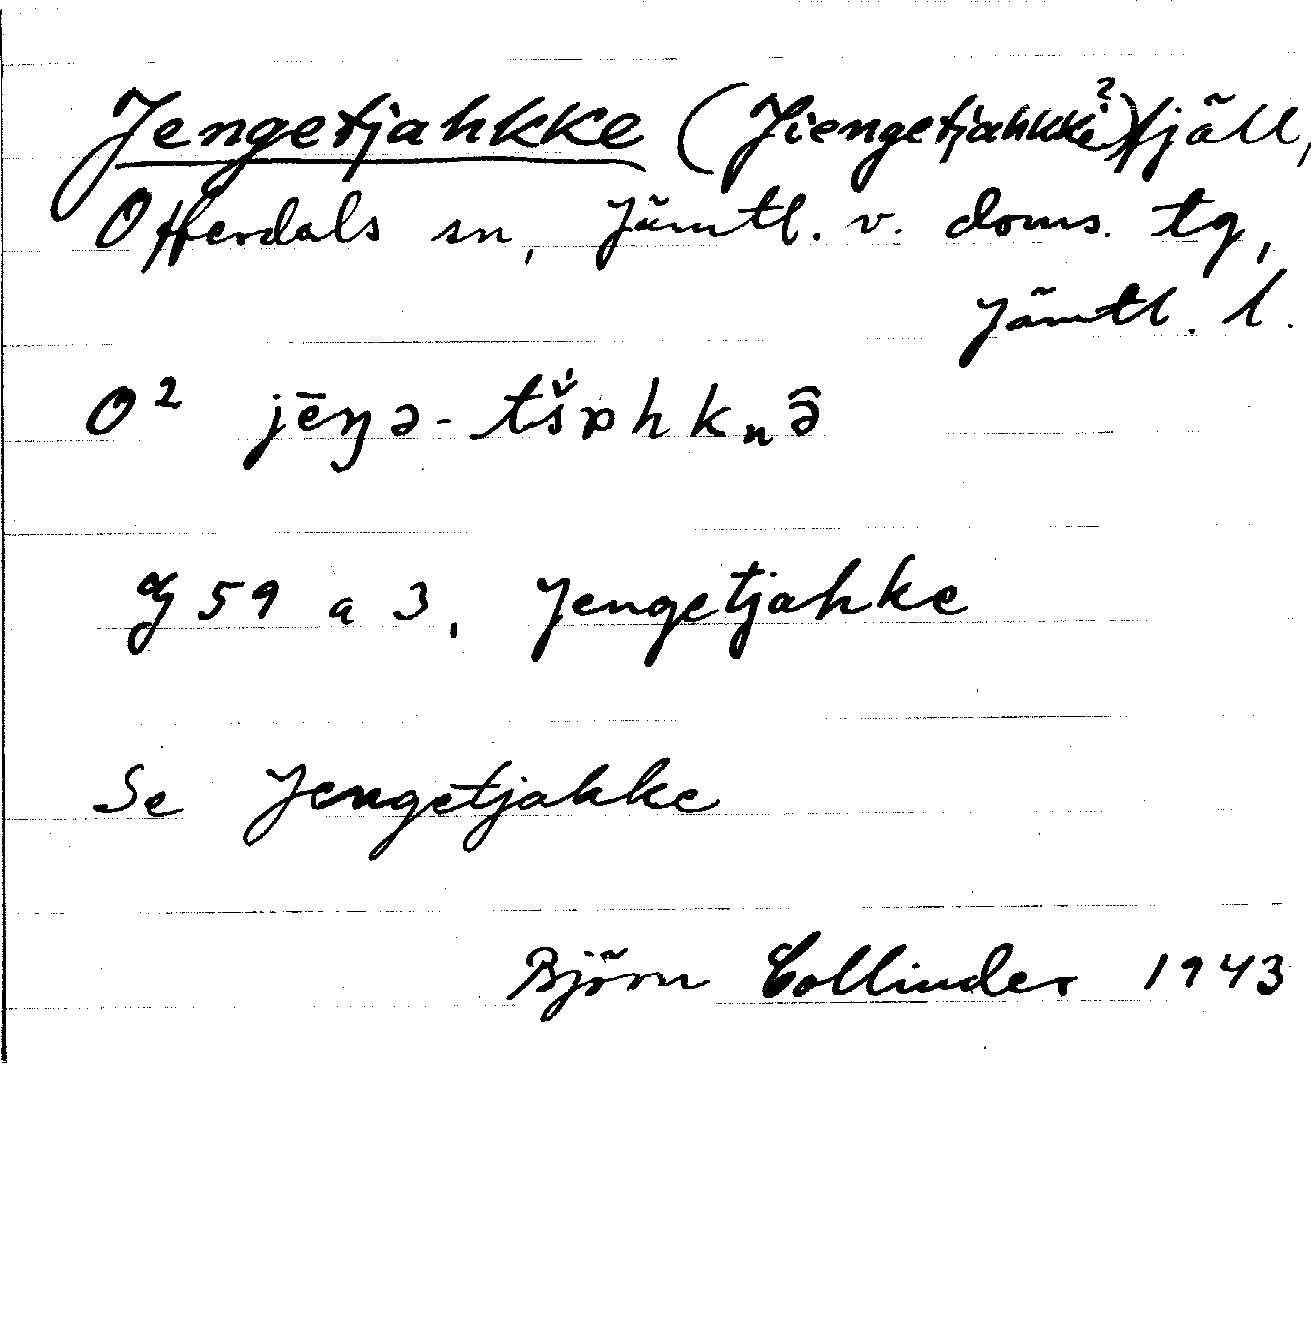 Jengetjahkke (Jiengetjahkke?) fjäll,
Offerdals sn, Jämtl. v. doms. tg,
Jämtl. l.
O² jēŋə-tš́ɒhkₙə̑
G 59 a 3, Jengetjahke
Se Jengetjahke
Björn Collinder 1943